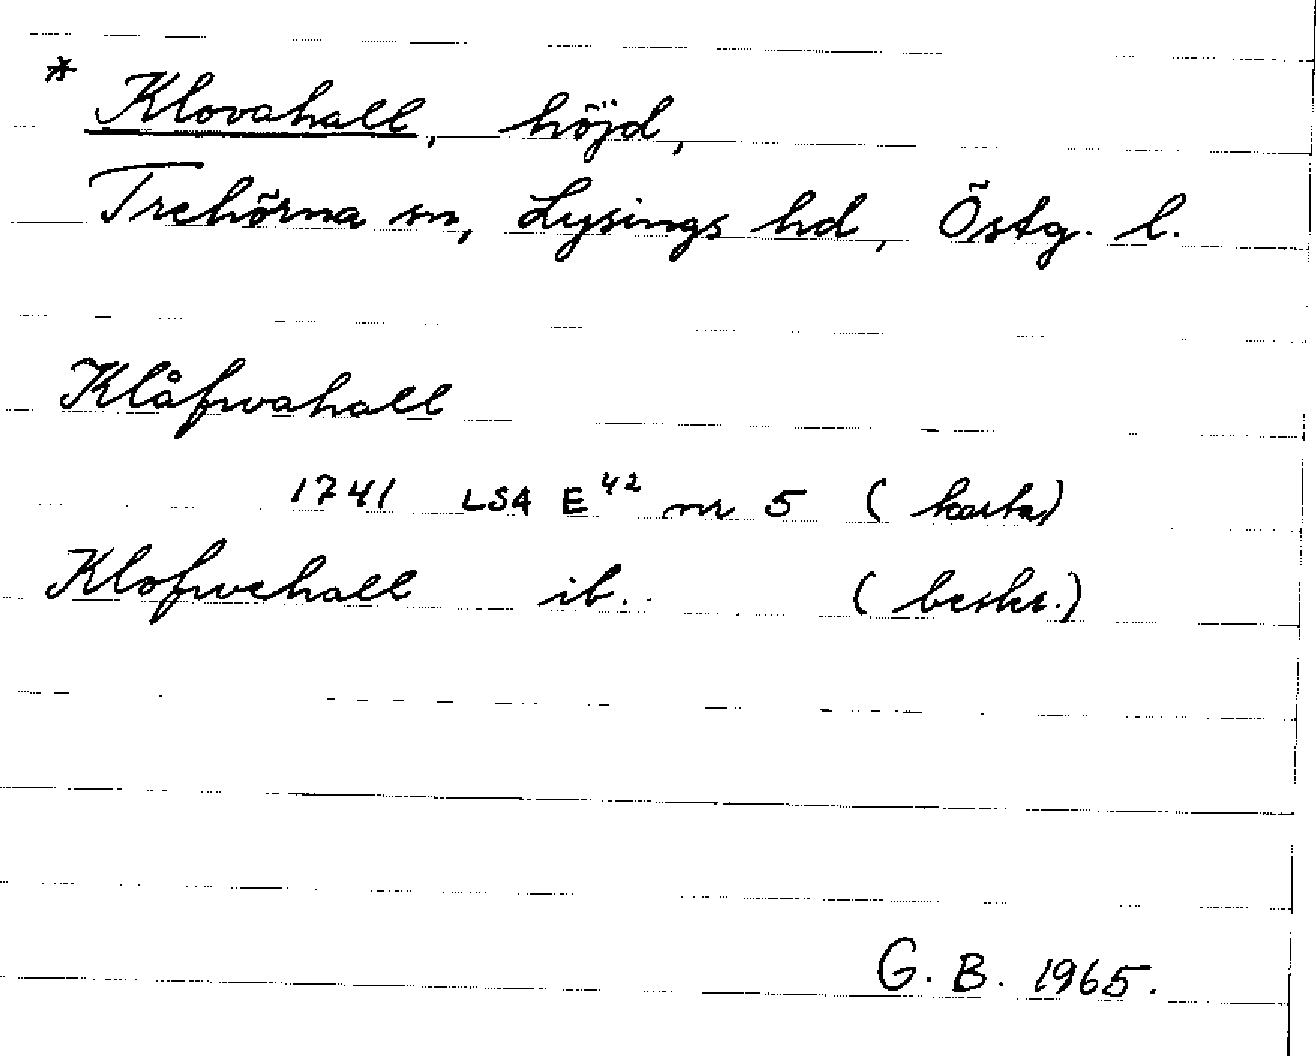 * Klovahall, höjd,
Trehörna sn, Lysings hd, Östg. l.
Klåfwahall
1741 LSA E42 nr 5 (karta)
Klofwehall ib. (beskr.)
G. B. 1965.